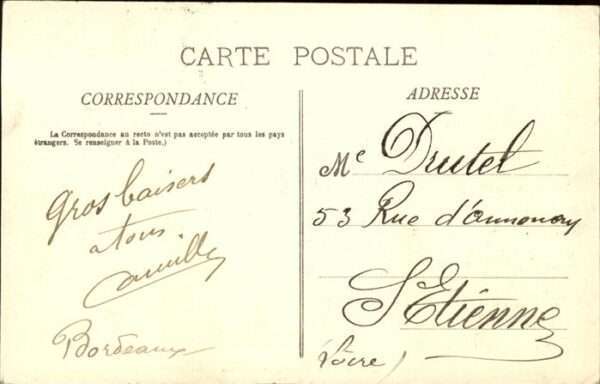 CARTE POSTALE
CORRESPONDANCE
La Correspondance au recto n'est pas acceptée par tous les pays
étrangers. Se renseigner à la Poste.)
Gros baisers
a tous
Camille
Bordeaux
ADRESSE
Me Drutel
53 Rue d'annonay
St Etienne
(Loire)